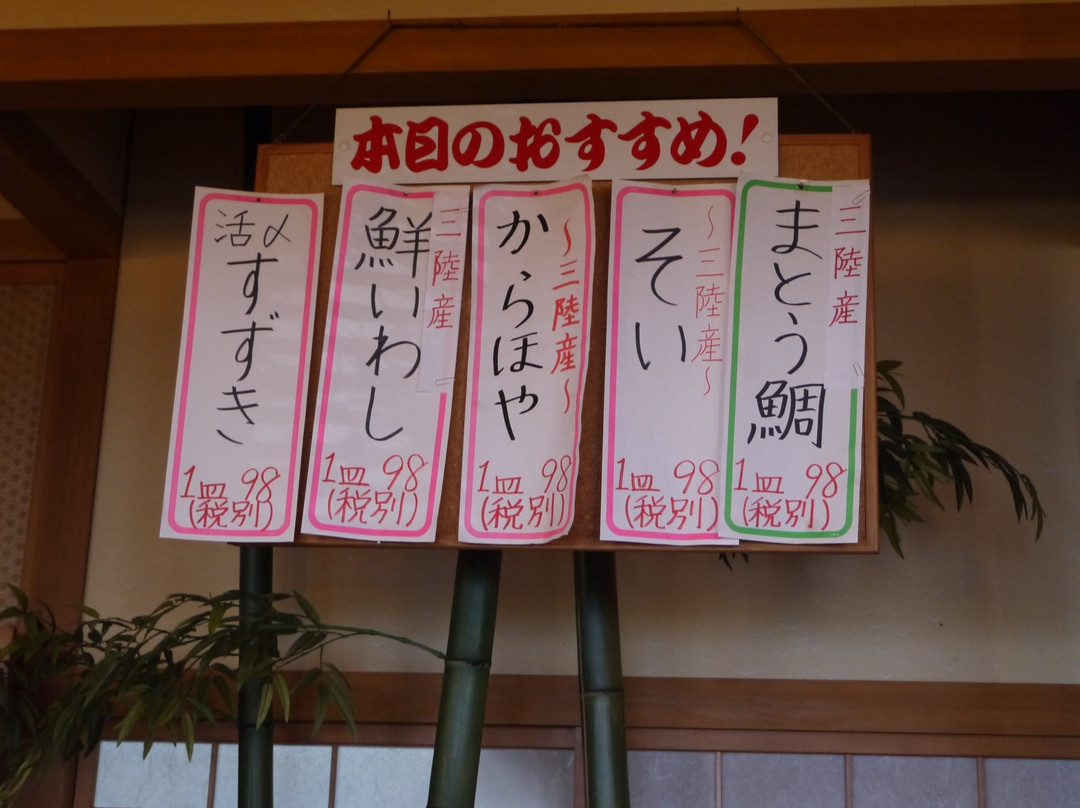 本日のおすすめ!
三陸産
まとう鯛
1皿 98
(税別)
~三陸産~
そい
1皿 98
(税別)
~三陸産~
からほや
1皿 98
(税別)
三陸産
鮮いわし
1皿 98
(税別)
活〆
すずき
1皿 98
(税別)